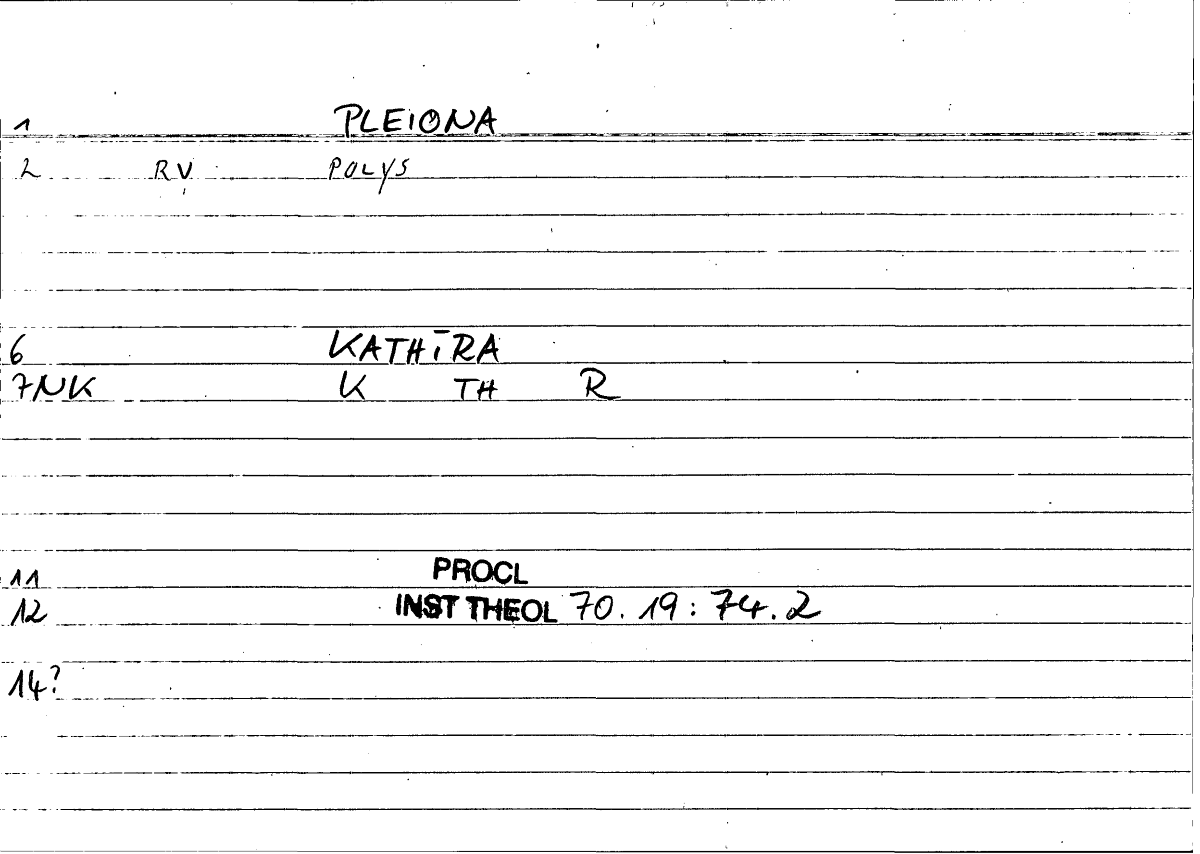 1 PLEIONA
2 RV POLYS
6 KATHĪRA
7NK K TH R
11 PROCL
12 INST THEOL 70.19:74.2
14?